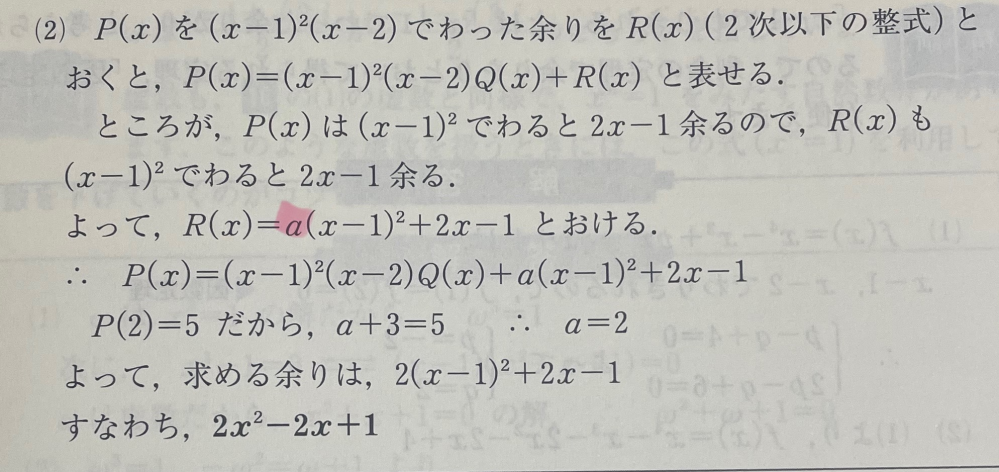 (2) P(x)を(x−1)²(x−2)でわった余りをR(x)(2次以下の整式)と
おくと,P(x)=(x−1)²(x−2)Q(x)+R(x) と表せる.
ところが,P(x)は(x−1)²でわると2x−1余るので,R(x)も
(x−1)²でわると2x−1余る.
よって,R(x)=a(x−1)²+2x−1 とおける.
∴ P(x)=(x−1)²(x−2)Q(x)+a(x−1)²+2x−1
P(2)=5 だから,a+3=5 ∴ a=2
よって,求める余りは,2(x−1)²+2x−1
すなわち,2x²−2x+1